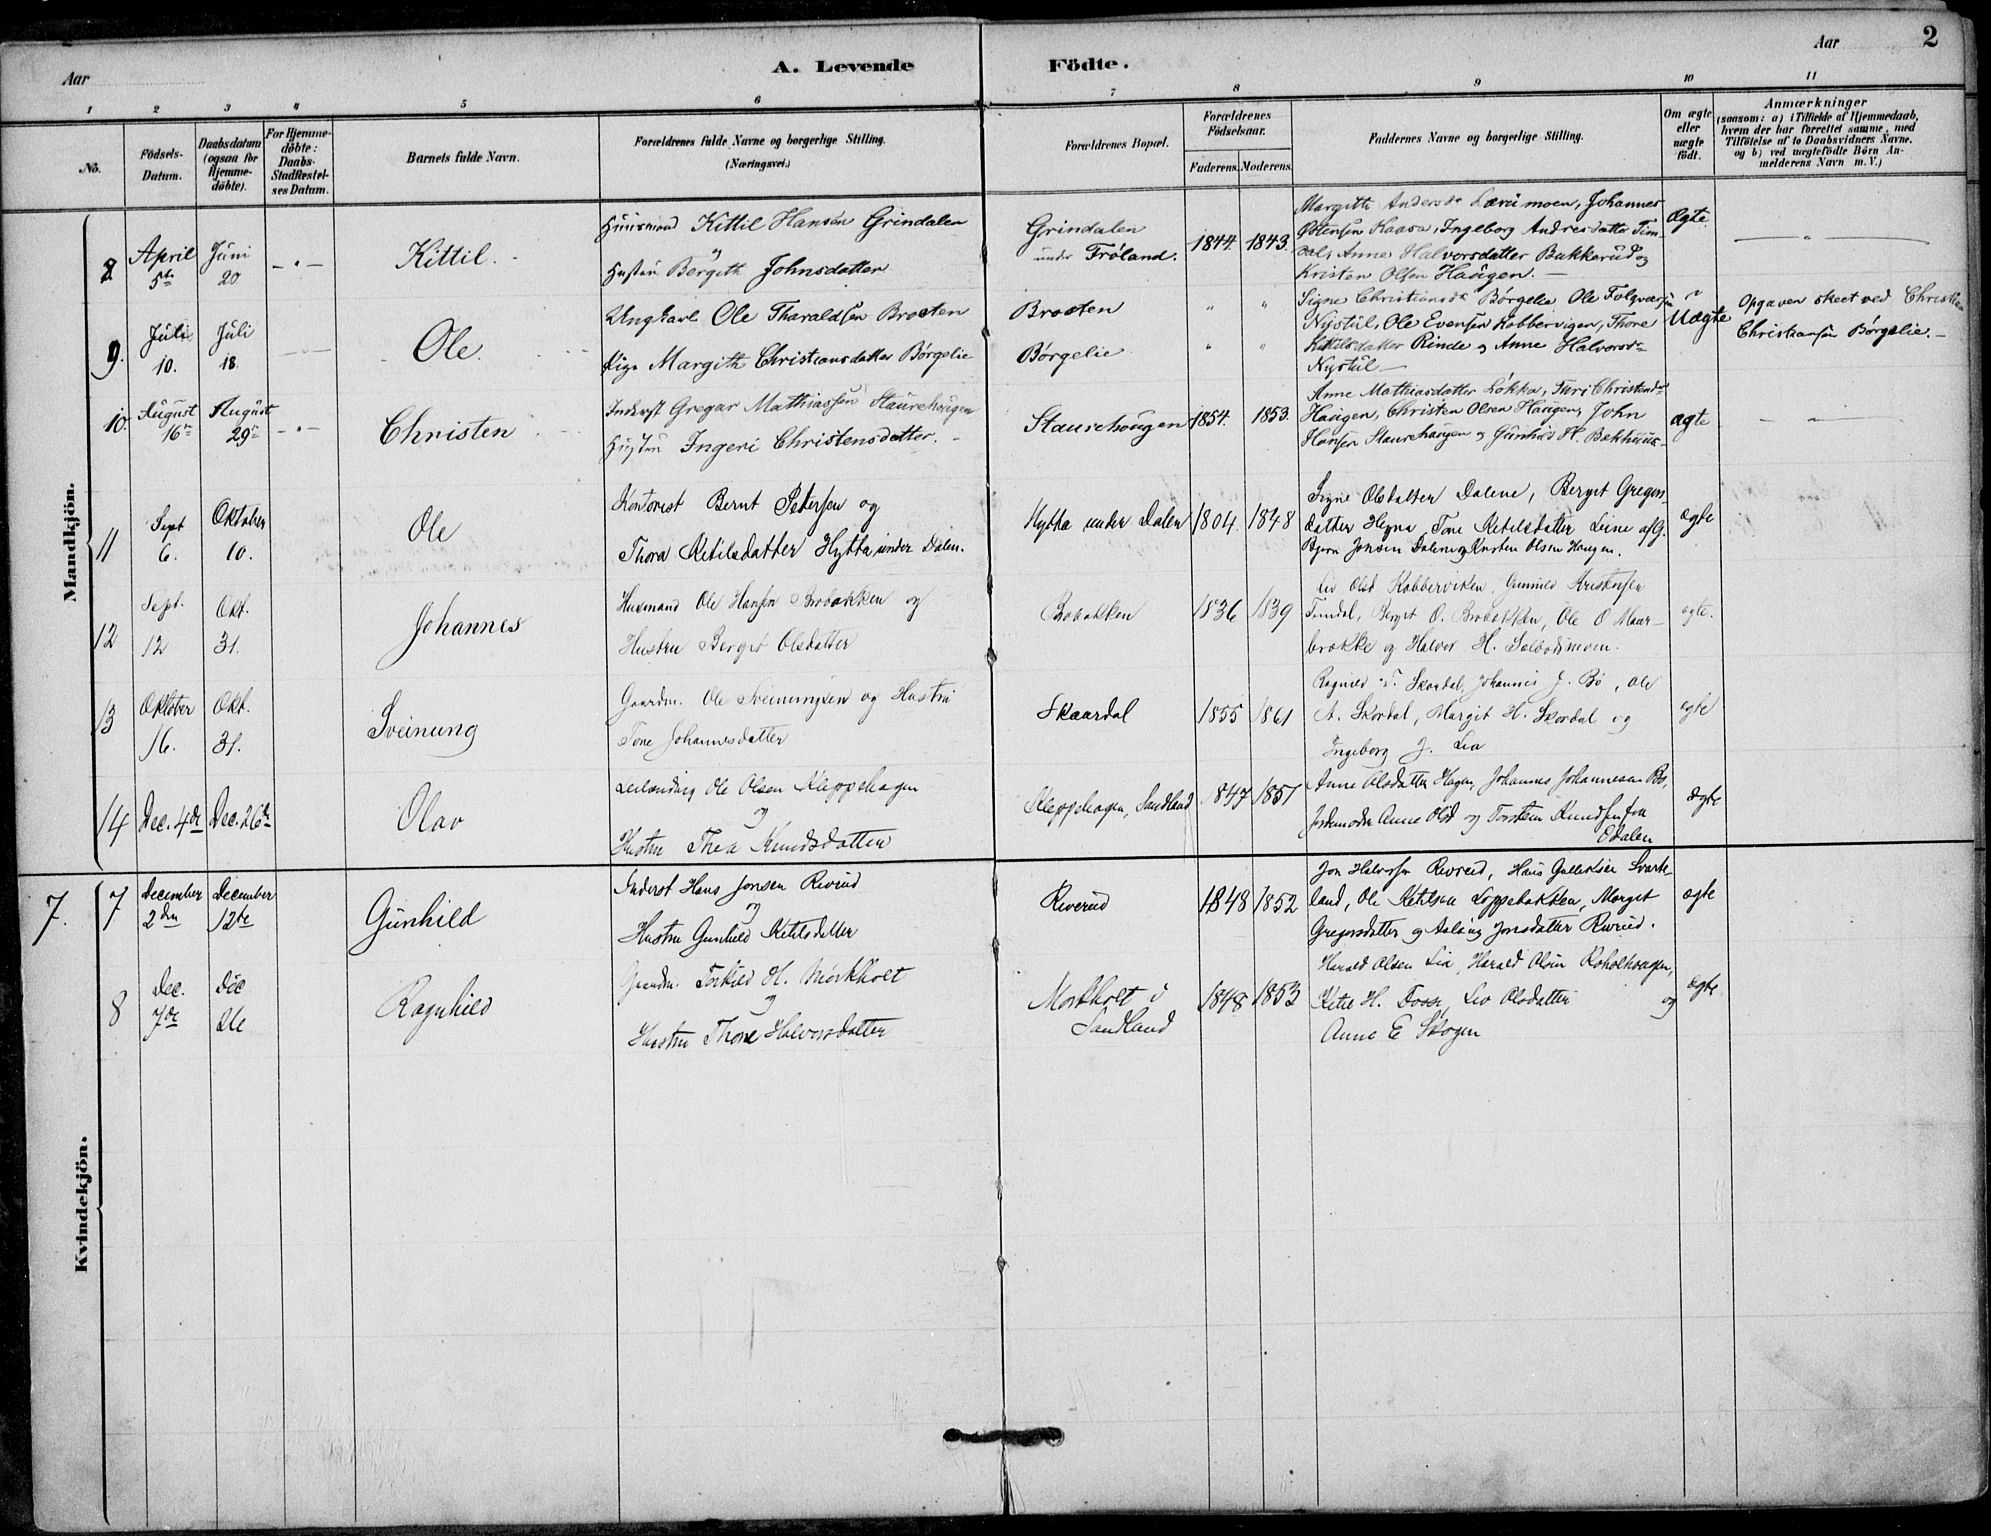 Aar
A. Levende
Födte.
Aar
2
1 2 3 4 5 6 7 8 9 10 11
No.
Födsels-Datum.
Daabsdatum (ogsaa for Hjemme-döbte).
For Hjemme-döbte: Daabs-Stadfæstel-ses Datum.
Barnets fulde Navn.
Forældrenes fulde Navne og borgerlige Stilling. (Næringsvei.)
Forældrenes Bopæl.
Forældrenes Födselsaar.
Faderens. Moderens.
Faddernes Navne og borgerlige Stilling.
Om ægte eller uægte födt.
Anmærkninger
(saasom: a) i Tilfælde af Hjemmedaab,
hvem der har forrettet samme, med
Tilföielse af to Daabsvidners Navne,
og b) ved uægtefödte Börn An-
melderens Navn m. V.)
Mandkjön.
8
April 5te
Juni 20
Kittil.
Huusmand Kittil Hansen Grindalen
og
Hustru Bergith Johnsdatter
Grindalen
under Fröland.
1844. 1843.
Margith Andersdr Lærimoen, Johannes
Kaasa, Ingeborg Andresdatter Tim-
dal, Anne Halvorsdatter Bukkerud og
Kristen Olsen Haugen.
Ægte.
9.
Juli 10.
Juli 18.
Ole.
Ungkarl Ole Tharaldsen Brosten
Pige Margith Christiansdatter Børgelie
Brosten
Børgelie
Signe Christiansdr Børgelie Ole
Nystul, Ole Evensen Kobbervigen, Thore
Kittilsdatter Rinde og Anne Halvorsdr
Nystul
Uægte
Opgaven skeet ved Christian
Christiansen Børgelie.
10.
August 16de
August 29de
Christen
Inderst Gregar Mathiassen Staurehaugen
Hustru Ingeri Christensdatter.
Staurehougen
1854. 1853.
Anne Mathiasdatter Løkka, Turi Christensdr
Haugen, Christen Olsen Haugen, John
Hansen Staurehaugen og Gunhild H. Bekhuus
ægte
11
Sept 6.
Oktober 10.
Ole
Kontorist Bernt Petersen og
Thora Ketilsdatter Hytta under Dalen.
Hytta under Dalen
1804. 1848
Signe Olsdatter Dalene, Berget Gregors-
datter Heyna Tone Ketilsdatter Leine af G.
Bjørn Jonsen Dalene og Kristen Olsen Haugen.
ægte
12
Sept. 12
Okt. 31.
Johannes
Husmand Ole Hansen Brobakken og
Hustru Berget Olsdatter
Bobakken
1836 1839
Liv Olsd Kobberviken, Gunnild Kristensen
Timdal, Berget O. Brobakken, Ole O Maar-
brække og Halvor H. Selbodimoen.
ægte.
13
Oktober 16.
Okt. 31.
Sveinung
Gaardm. Ole Sveinungsen og Hustru
Tone Johannesdatter
Skaardal
1855 1861
Ragnild T. Skordal, Johannes J. Bø, Ole
A. Skordal, Margit H. Skordal og
Ingeborg J. Lia
ægte
14
Dec. 4de
Dec. 26de
Olav
Leilænding Ole Olsen Kleppehagen
og
Hustru Thea Knudsdatter
Kleppehagen, Sandland
847 1851
Anne Olsdatter Hagen, Johannes Johannesen Bø,
Jordemoder Anne Olsd og Torstein Knudsen fra
Ødalen
ægte
Kvindekjön.
7.
7
December 2den
December 12te
Gunhild
Inderst Hans Jonsen Riverud
og
Hustru Gunhild Ketilsdatter
Riverud
1848 1852
Jon Halvorsen Riverud, Hans Gulleksen Svarte-
land, Ole Ketilsen Loppebakken, Marget
Gregorsdatter og Aslaug Jonsdatter Riverud.
ægte
8
Dec. 7de
Ragnhild
Gaardm. Torkild H. Mørkholt
og
Hustru Thone Halvorsdatter
Morkholt i
Sandland
1848 1853
Harald Olsen Lia, Harald Olsen Roholthaugen,
Ketil H. Fosse, Liv Olsdatter og
Anne E Skogen
ægte